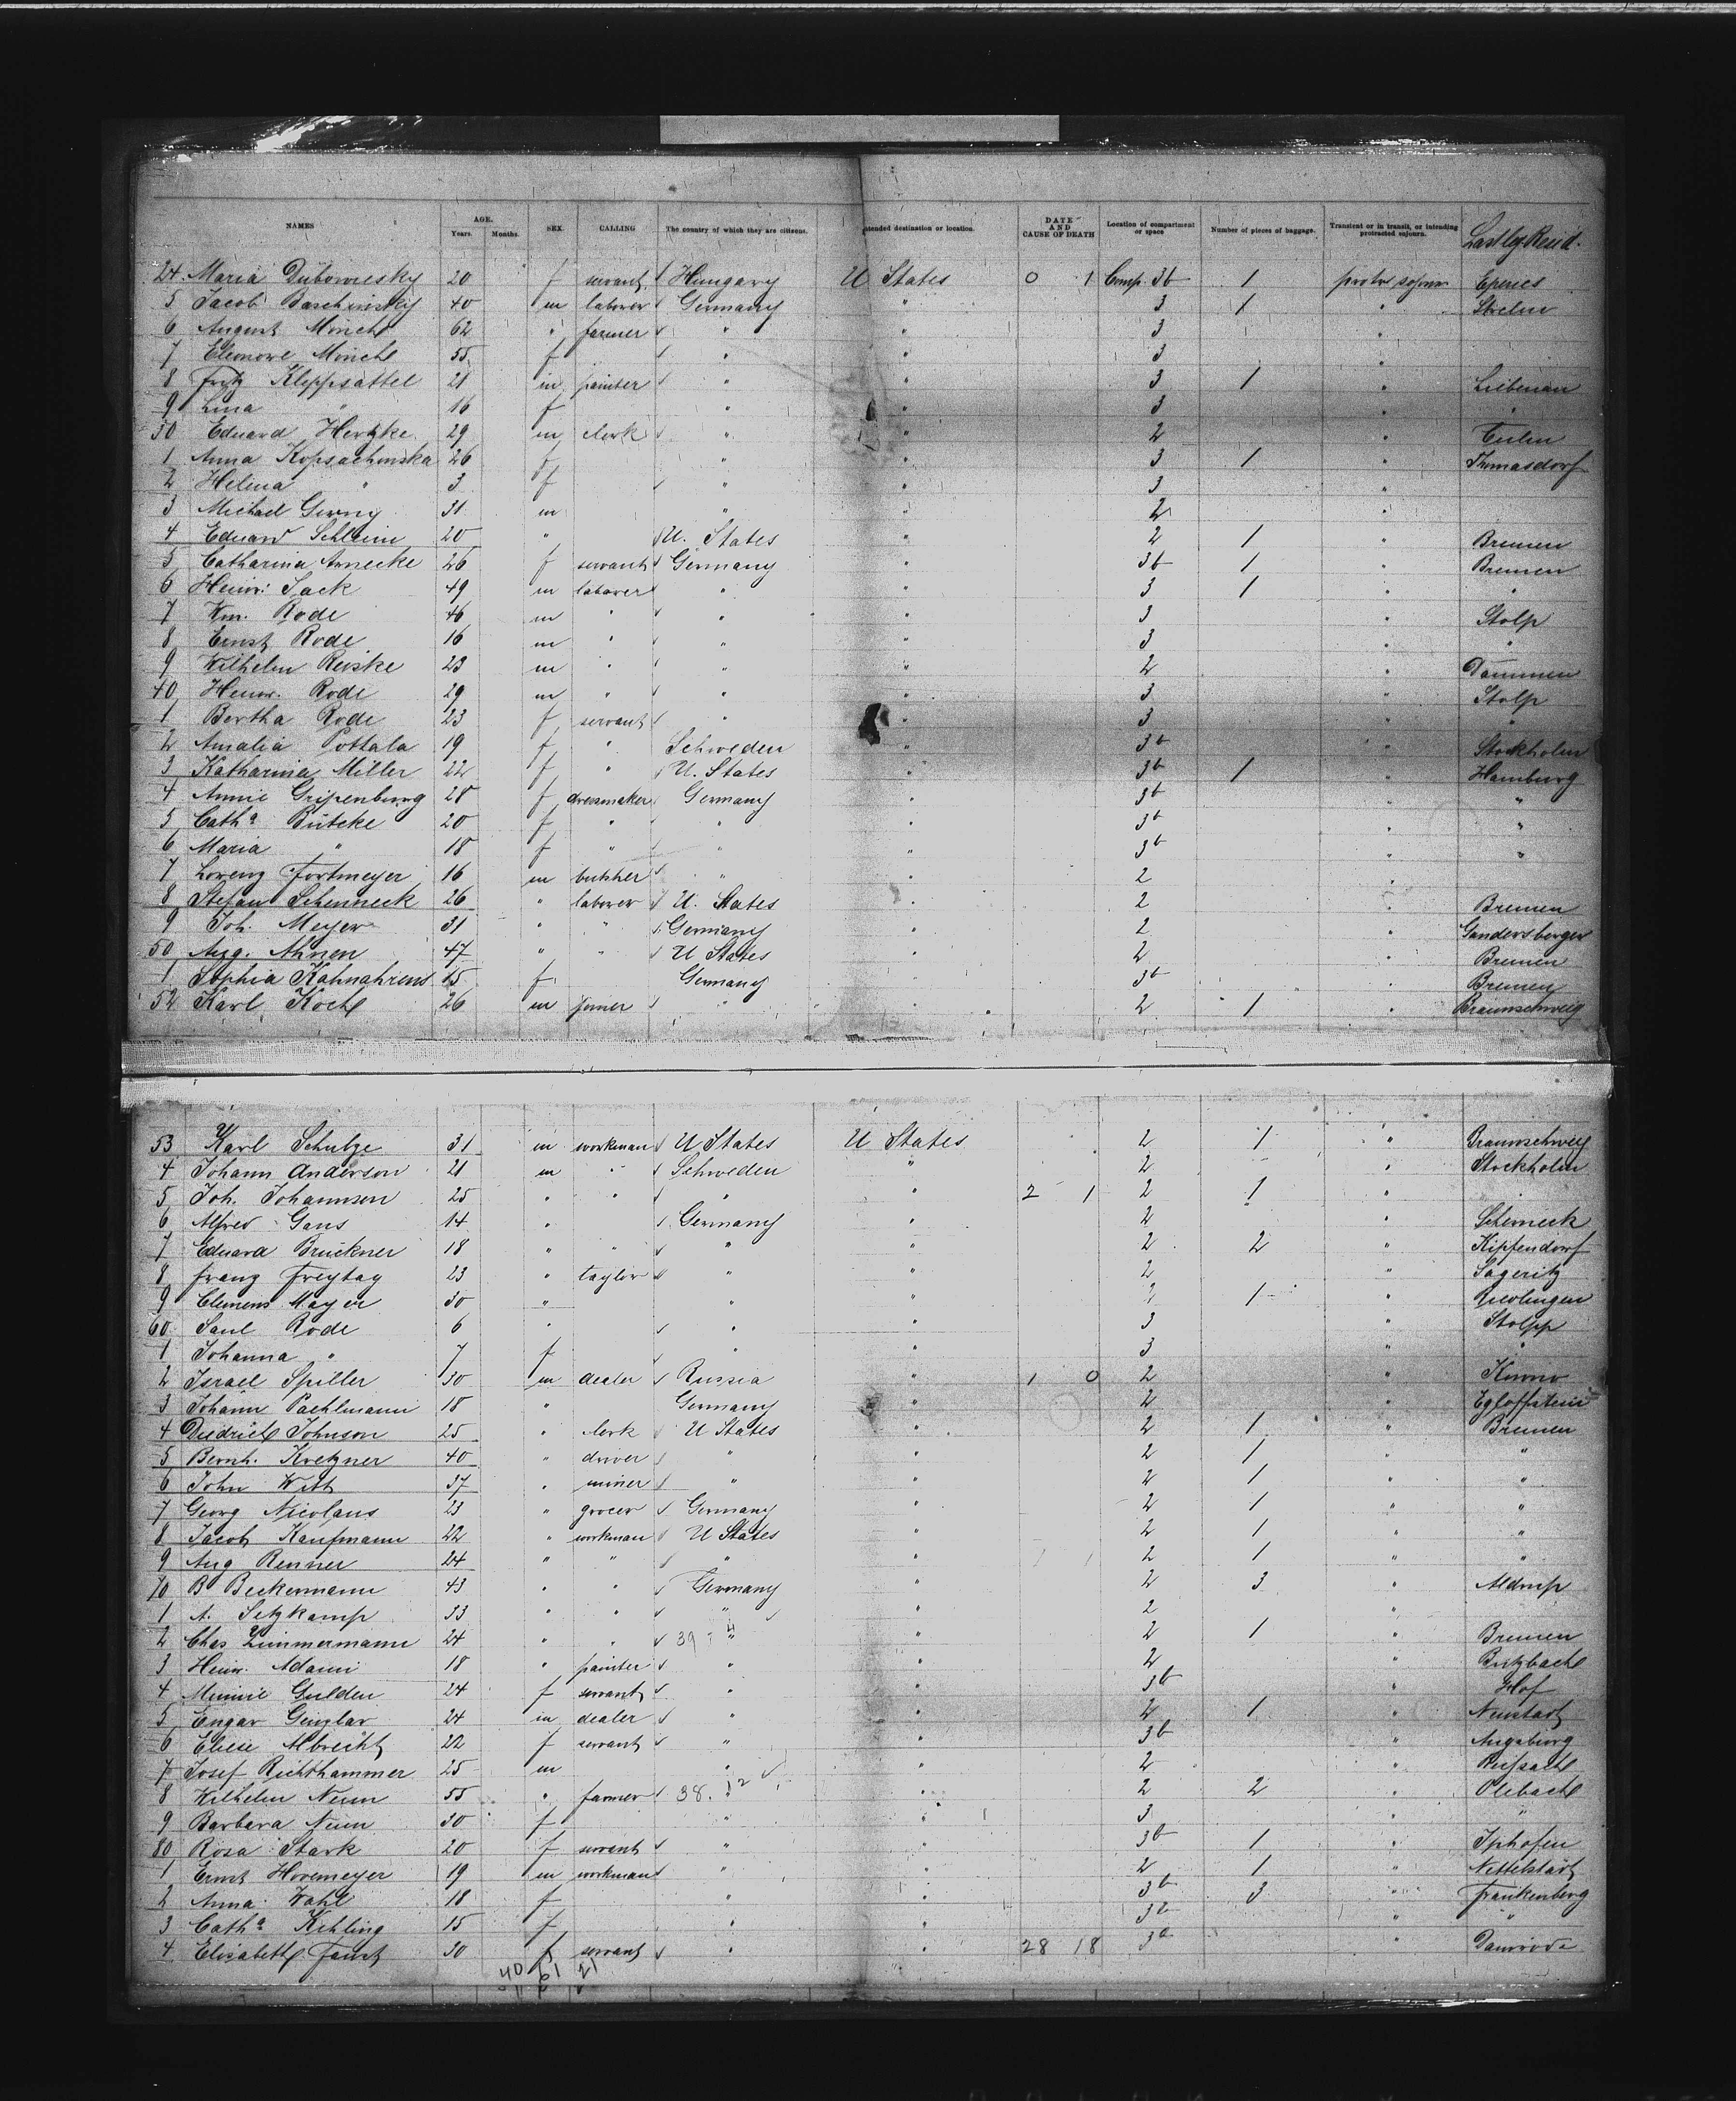 NAMES AGE. Years. Months. SEX. CALLING The country of which they are citizens. Intended destination or location. DATE AND CAUSE OF DEATH Location of compartment or space Number of pieces of baggage. Transient or in transit, or intending protracted sojourn. Last leg. Resid.
24. Maria Dubowiesky 20 f servant Hungary U States 0 1 Comp. 3b 1 protr. sojourn Eperies
5 Jacob 40 m laborer Germany " 3 1 " Strelno
6 August Münch 62 " farmer " " 3 "
7 Eleonore Münch 55 f " " 3 "
8 Fritz Kleppsattel 21 m painter " " 3 1 " Liebenau
9 Lina " 16 f " " 3 " "
30 Eduard Hertzke 29 m clerk " " 2 " Culm
1 Anna Kopsachinska 26 f " " 3 1 " Thomasdorf
2 Helena " 3 f " " 3 "
3 Michael Gerny 31 m " " 2 "
4 Eduard Schleim 20 " U. States " 2 1 " Bremen
5 Catharina Arnecke 26 f servant Germany " 3b 1 " Bremen
6 Heinr. Sack 49 m laborer " " 3 1 " "
7 Wm. Rode 46 m " " " 3 " Stolp
8 Ernst Rode 16 m " " " 3 " "
9 Wilhelm Reiske 23 m " " " 2 " Dammen
40 Heinr. Rode 29 m " " " 3 " Stolp
1 Bertha Rode 23 f servant " " 3 " "
2 Amalia Pottala 19 f " Schweden " 3b " Stockholm
3 Katharina Miller 22 f " U. States " 3b 1 " Hamburg
4 Annie Gripenburg 28 f dressmaker Germany " 3b " "
5 Catha Büteke 20 f " " " 3b " "
6 Maria " 18 f " " " 3b " "
7 Lorenz Fortmeyer 16 m butcher " " 2 "
8 Stefan Schenneck 26 " laborer U. States " 2 " Bremen
9 Joh. Meyer 31 " " Germany " 2 " Gandersberger
50 Aug. Ahnen 47 " " U States " 2 " Bremen
1 Sophia Kahnahrens 65 f Germany " 3b " Bremen
52 Karl Koch 26 m joiner " " 2 1 " Braunschweig
53 Karl Schulze 31 m workman U States U States 2 1 " Braunschweig
4 Johann Anderson 21 m " Schweden " 2 " Stockholm
5 Joh. Johannsen 25 " " " " 2 1 2 1 "
6 Alfred Gans 14 " Germany " 2 " Scherneck
7 Eduard Bruckner 18 " " " " 2 2 " Kipfendorf
8 Franz Freytag 23 " taylor " " 2 " Sageritz
9 Clemens Mayer 30 " " " 2 1 " Riedlingen
60 Saul Rode 6 " " " 3 " Stolpp
1 Johanna " 7 f " " 3 " "
2 Israel Spiller 30 m dealer Russia " 1 0 2 " Kowno
3 Johann Pachlmann 18 " Germany " 2 " Egloffstein
4 Diedrich Johnson 25 " clerk U States " 2 1 " Bremen
5 Bernh. Kretzner 40 " driver " " 2 1 " "
6 John Witt 37 " miner " " 2 1 " "
7 Georg Nicolaus 23 " grocer Germany " 2 1 " "
8 Jacob Kaufmann 22 " workman U States " 2 1 " "
9 Aug Renner 24 " " " " 2 1 " "
70 B Beckermann 43 " " Germany " 2 3 " Aldrup
1 A. Setzkamp 33 " " " " 2 "
2 Chas Zimmermann 24 " " 39 4 " " 2 1 " Bremen
3 Heinr. Adami 18 " painter " " 2 " Butzbach
4 Minnie Gulden 24 f servant " " 3b " Hof
5 Engar Genglar 24 m dealer " " 2 1 " Neustadt
6 Eliese Albrecht 22 f servant " " 3b " Augsburg
7 Josef Richthammer 25 m " " 2 "
8 Wilhelm Neun 55 " farmer 38. 12 " " 2 2 "
9 Barbara Neun 30 f " " 3 " "
80 Rosa Stark 20 f servant " " 3b 1 " Iphofen
1 Ernst Hovemeyer 19 m workman " " 2 1 " Nettelstädt
2 Anna Wahl 18 f " " 3b 3 " Frankenberg
3 Catha Kehling 15 f " " 3b " "
4 Elisabeth Faust 30 f servant " " 28 18 3b " Damrode
40 61 21